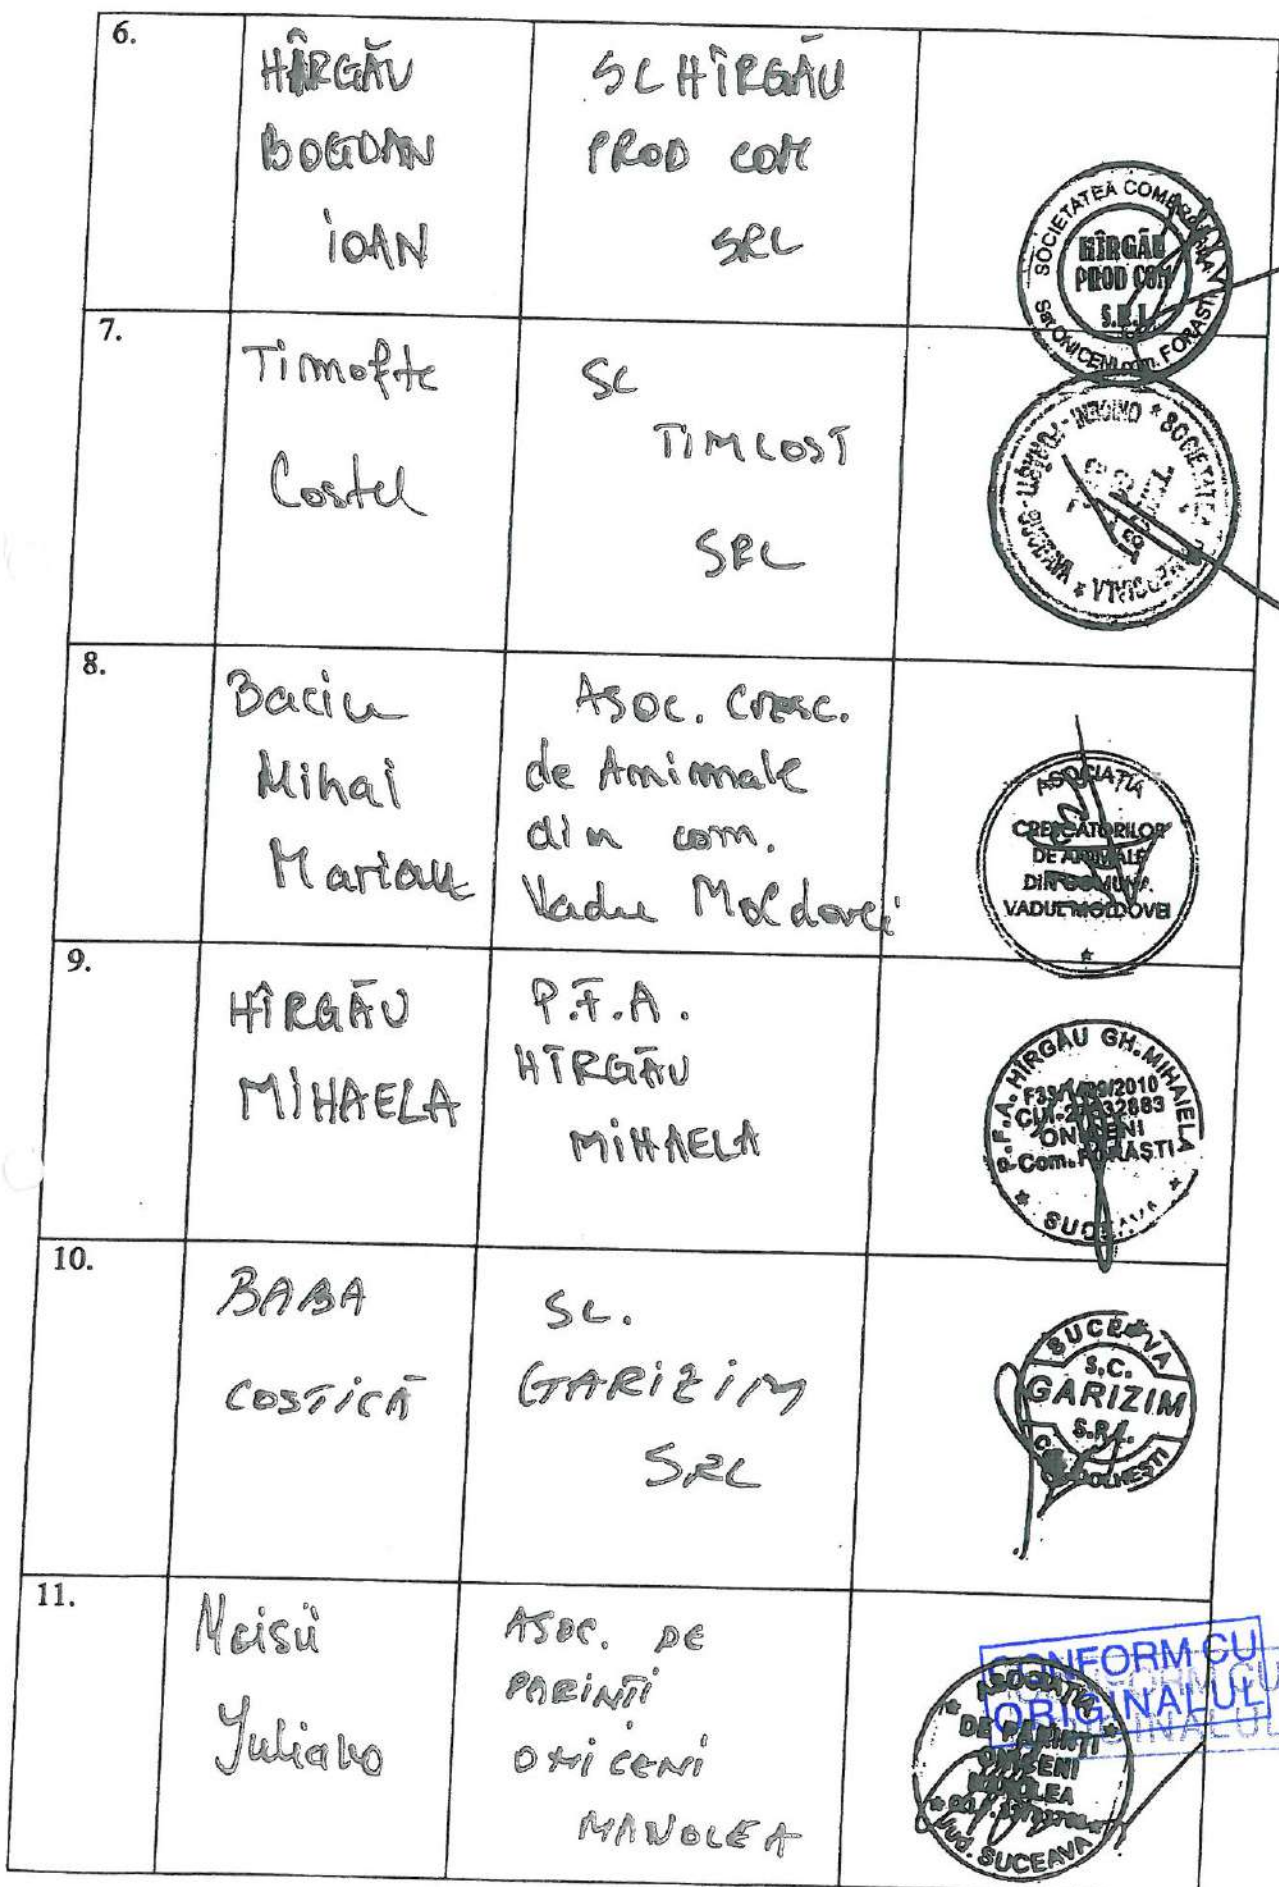 6.
HÎRGĂU
BOGDAN
IOAN
SC HÎRGĂU
PROD COM
SRL
SOCIETATEA COMERCIALA
HÎRGĂU
PROD COM
S.R.L
Sat ONICENI com. FORASTI
7.
Timofte
Costel
SC
TIMCOST
SRL
8.
Baciu
Mihai
Marian
Asoc. Cresc.
de Animale
din com.
Vadu Moldovei
ASOCIAȚIA
CRESCATORILOR
DE ANIMALE
DIN COMUNA
VADUL MOLDOVEI
9.
HÎRGĂU
MIHAELA
P.F.A.
HÎRGĂU
MIHAELA
P.F.A. HÎRGĂU GH. MIHAIELA
ONICENI
Com. FORĂȘTI
SUCEAVA
10.
BABA
COSTICĂ
SC.
GARIZIM
SRL
SUCEAVA
S.C.
GARIZIM
S.R.L.
DOLHEȘTI
11.
Iuliano
ASOC. DE
PARINTI
ONICENI
MANOLEA
CONFORM CU
ORIGINALUL
ASOCIAȚIA
DE PARINTI
ONICENI
MANOLEA
Jud. SUCEAVA